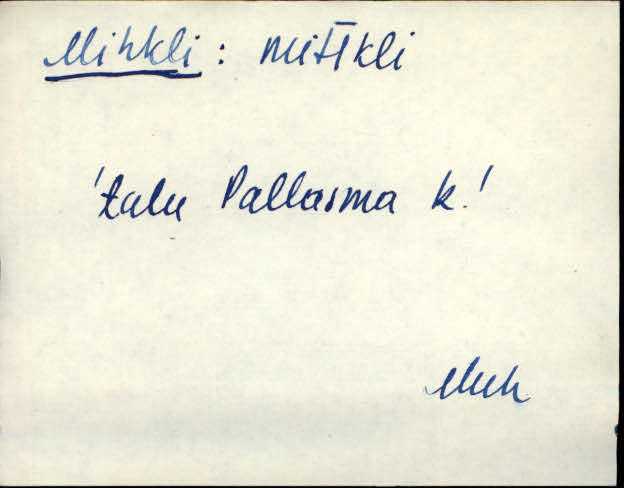 Mihkli : mihkli
'talu Pallasma k.'
Muh